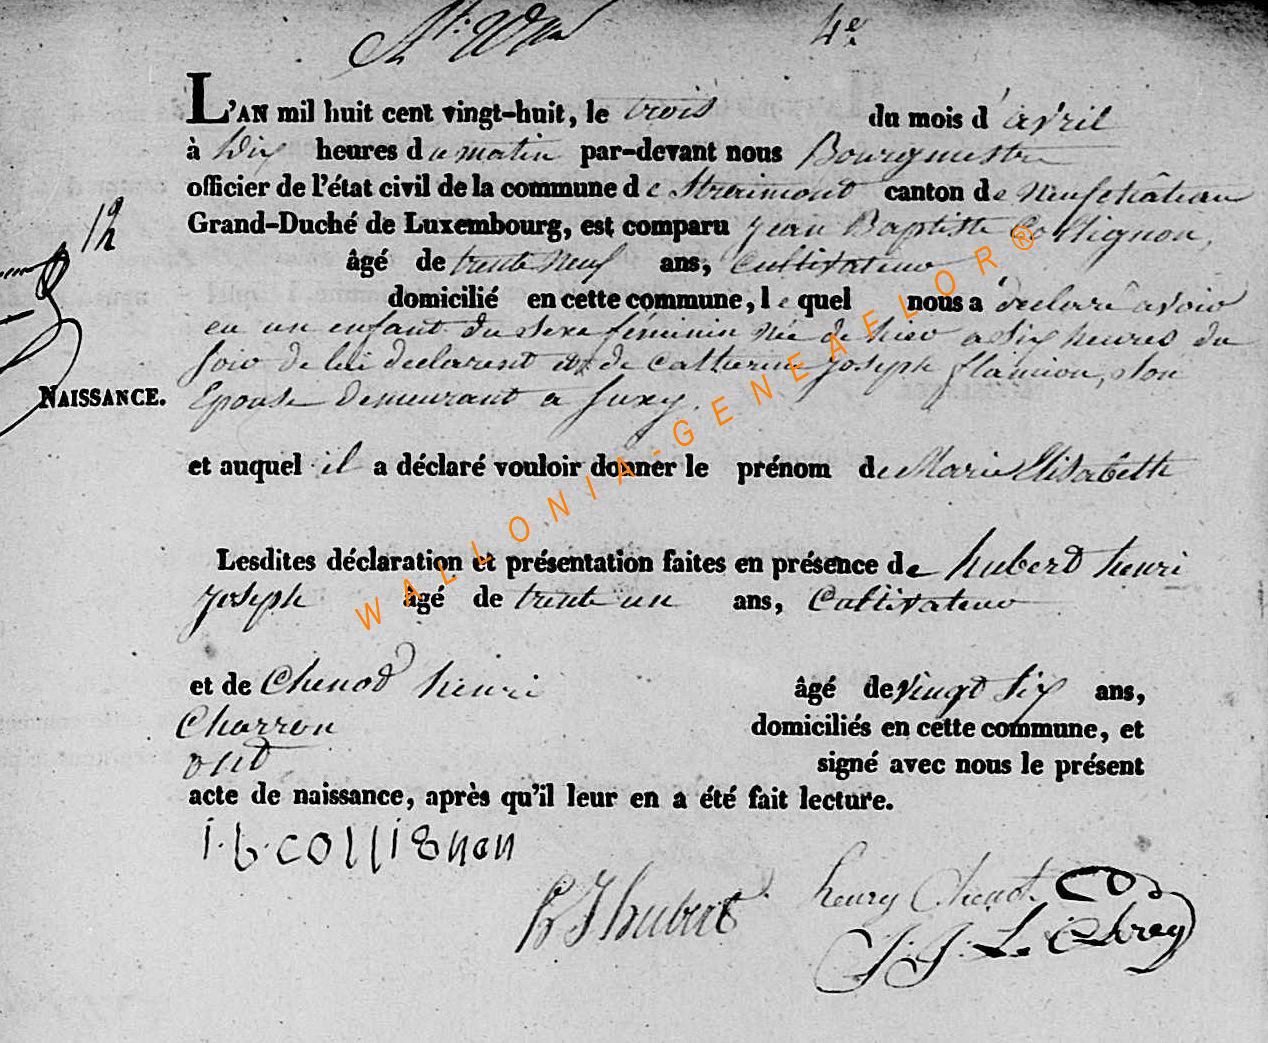 4e
L'AN mil huit cent vingt-huit, le trois du mois d'avril
à Dix heures du matin par-devant nous Bourgmestre
officier de l'état civil de la commune de Straimont canton de neufchâteau
Grand-Duché de Luxembourg, est comparu Jean Baptiste Collignon,
12
âgé de trente neuf ans, Cultivateur
domicilié en cette commune, le quel nous a déclaré avoir
eu un enfant du sexe féminin née de hier a six heures du
soir de lui declarent et de Catherine Joseph flamion, son
NAISSANCE. Epouse demeurant a Suxy.
et auquel il a déclaré vouloir donner le prénom de Marie Elisabetth
Lesdites déclaration et présentation faites en présence de hubert henri
Joseph âgé de trente un ans, Cultivateur
et de Chenod henri âgé de vingt six ans,
Charron domiciliés en cette commune, et
ont signé avec nous le présent
acte de naissance, après qu'il leur en a été fait lecture.
i.b.collignon
h J hubert henry Chenot
J. J. Le
WALLONIA-GENEAFLOR®